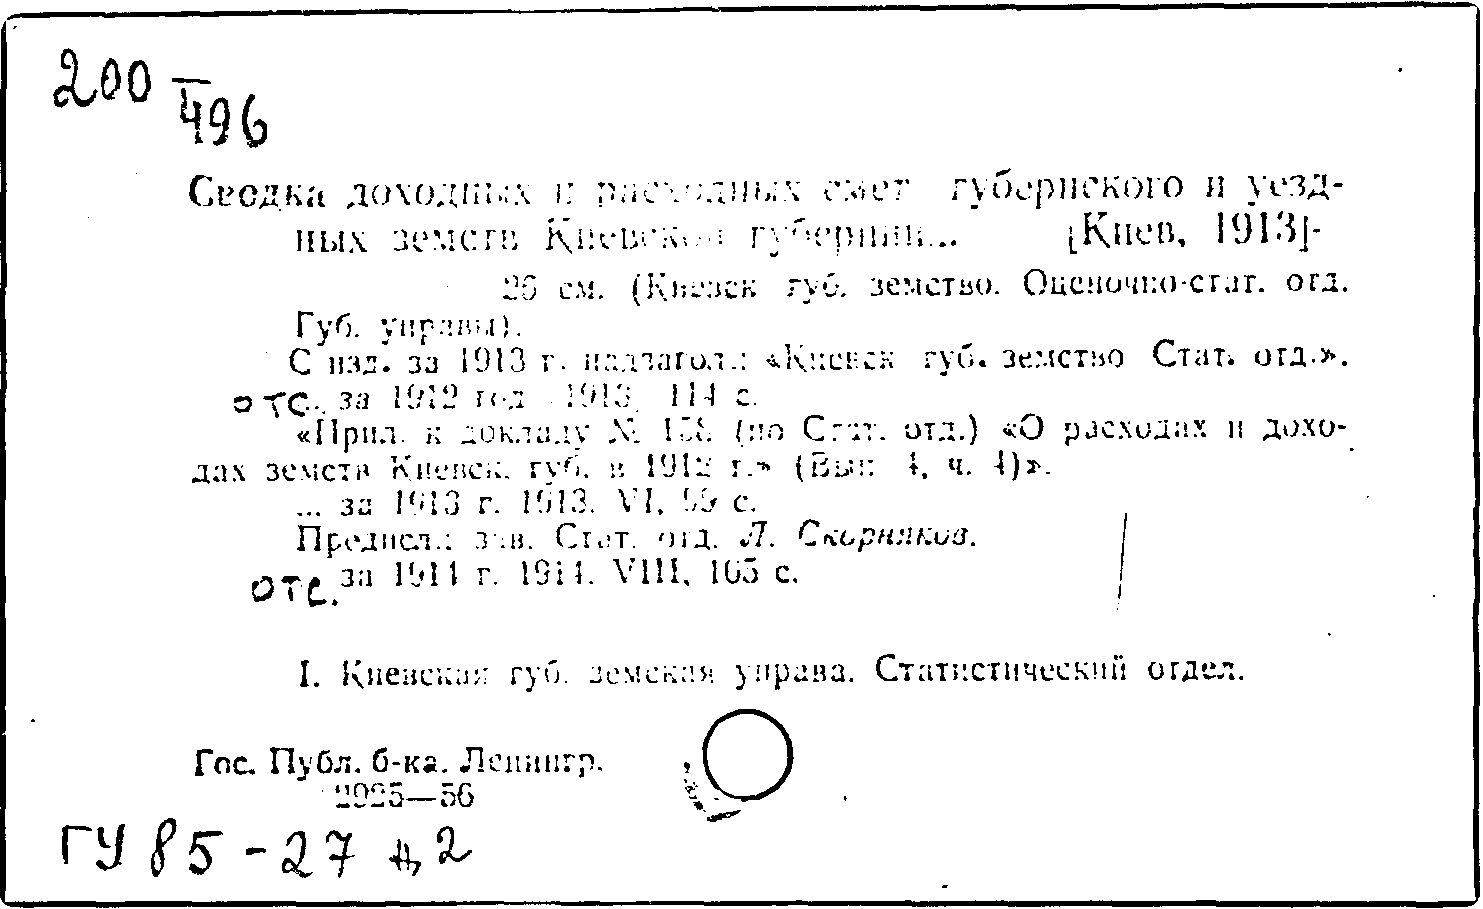 200
496
Сводка доходных и расходных смет губернского и уезд-
ных земств Киевской губернии... [Киев, 1913]-
26 см. (Киевск губ. земство. Оценочно-стат. отд.
Губ. управы).
С изд. за 1913 г. надзагол.: «Киевск губ. земство Стат. отд.».
отс. за 1912 год 1913. 114 с.
«Прил. к докладу № 158 (по Стат. отд.) «О расходах и дохо-
дах земств Киевск. губ. в 1912 г.» (Вып 4, ч. 4)».
... за 1913 г. 1913. VI, 99 с.
Предисл.: зав. Стат. отд. Л. Скорняков.
отс. за 1914 г. 1914. VIII, 105 с.
I. Киевская губ. земская управа. Статистический отдел.
Гос. Публ. б-ка. Ленингр.
2925—56
ГУ 85-27 2